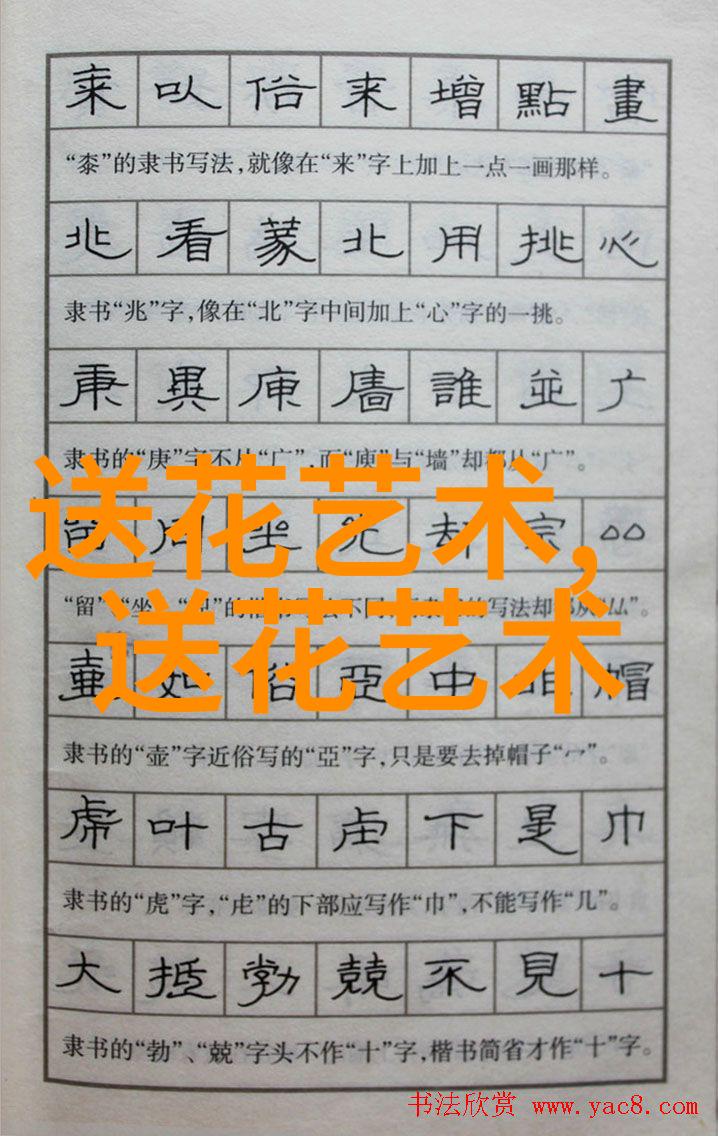 来以俗来增點畫
“桼”的隶书写法，就像在“来”字上加上一点一画那样。
兆看蒙北用挑心
隶书“兆”字，像在“北”字中间加上“心”字的一挑。
庚異庾廧誰並广
隶书的“庚”字不从“广”，而“庾”与“墙”却都从“广”。
送花艺术，
却宗
送花艺术
俗亞中帽
隶书的“壶”字近俗写的“亞”字，只是要去掉帽子“宀”。
虎叶古虍下是巾
隶书的“虎”字，“虍”的下部应写作“巾”，不能写作“几”。
大抵勃兢不見十
隶书的“勃”、“兢”字头不作“十”字，楷书简省才作“十”字。
书法欣赏 www.yac8.com